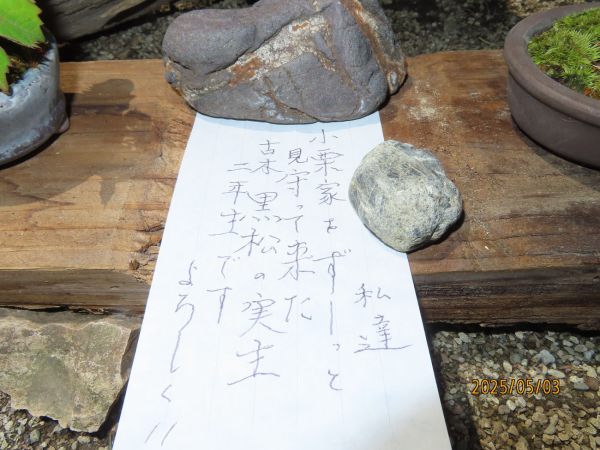 私達
小栗家をずーっと
見守って来た
古木 黒松の実生
二年生です
よろしく!!
2025/05/03